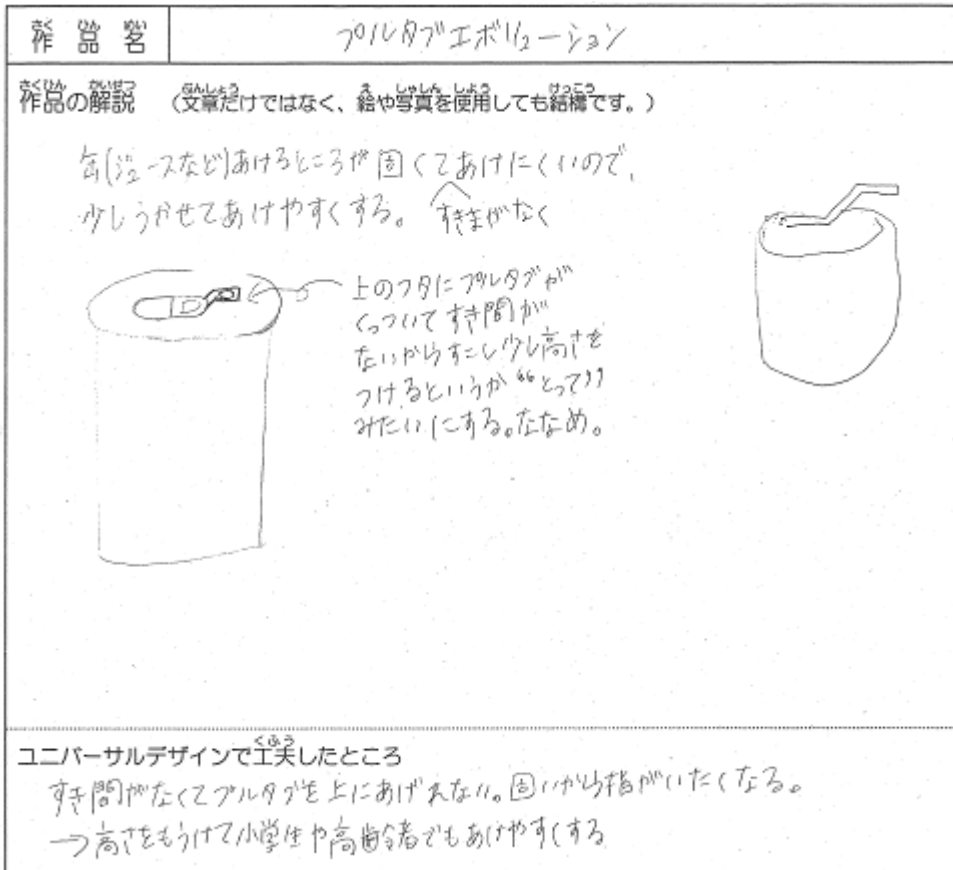 作品名
プルタブエボリューション
作品の解説 (文章だけではなく、絵や写真を使用しても結構です。)
缶(ジュースなど)あけるところが固くてあけにくいので、
すきまがなく
少しうかせてあけやすくする。
上のフタにプルタブが
くっついてすき間が
ないからすこし少し高さを
つけるというか“とって”
みたいにする。ななめ。
ユニバーサルデザインで工夫したところ
すき間がなくてプルタブを上にあげれない。固いから指がいたくなる。
→高さをもうけて小学生や高齢者でもあけやすくする